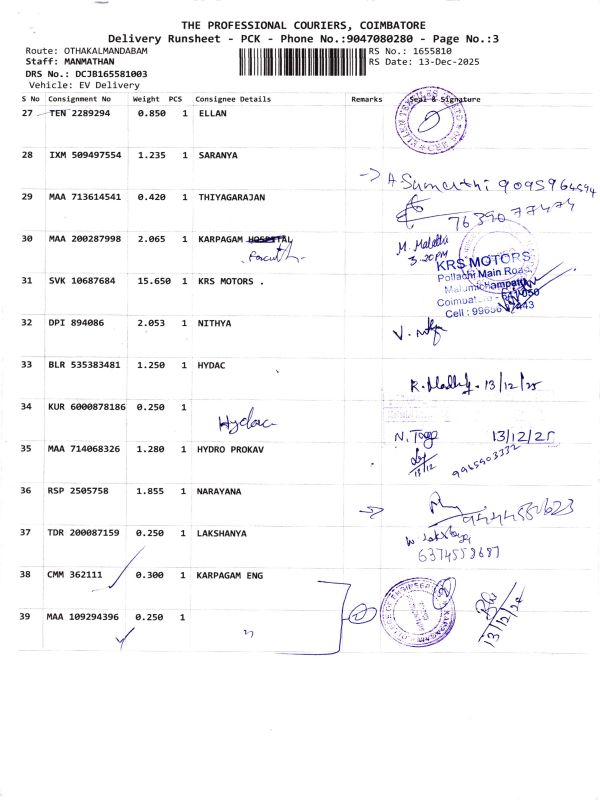 THE PROFESSIONAL COURIERS, COIMBATORE
Delivery Runsheet - PCK - Phone No.:9047080280 - Page No.:3
Route: OTHAKALMANDABAM
RS No.: 1655810
Staff: MANMATHAN
RS Date: 13-Dec-2025
DRS No.: DCJB165581003
Vehicle: EV Delivery
S No Consignment No Weight PCS Consignee Details Remarks Seal & Signature
27 TEN 2289294 0.850 1 ELLAN
28 IXM 509497554 1.235 1 SARANYA
A Sumathi 9095964594
29 MAA 713614541 0.420 1 THIYAGARAJAN
7639077474
30 MAA 200287998 2.065 1 KARPAGAM HOSPITAL
M. Malathi
3.20PM
31 SVK 10687684 15.650 1 KRS MOTORS .
KRS MOTORS
Pollachi Main Road,
Malumichampatti
Cell : 99656
32 DPI 894086 2.053 1 NITHYA
33 BLR 535383481 1.250 1 HYDAC
13/12/25
34 KUR 6000878186 0.250 1
Hydac
35 MAA 714068326 1.280 1 HYDRO PROKAV
13/12/25
13/12
9965903332
36 RSP 2505758 1.855 1 NARAYANA
37 TDR 200087159 0.250 1 LAKSHANYA
6374552687
38 CMM 362111 0.300 1 KARPAGAM ENG
39 MAA 109294396 0.250 1
13/12/25